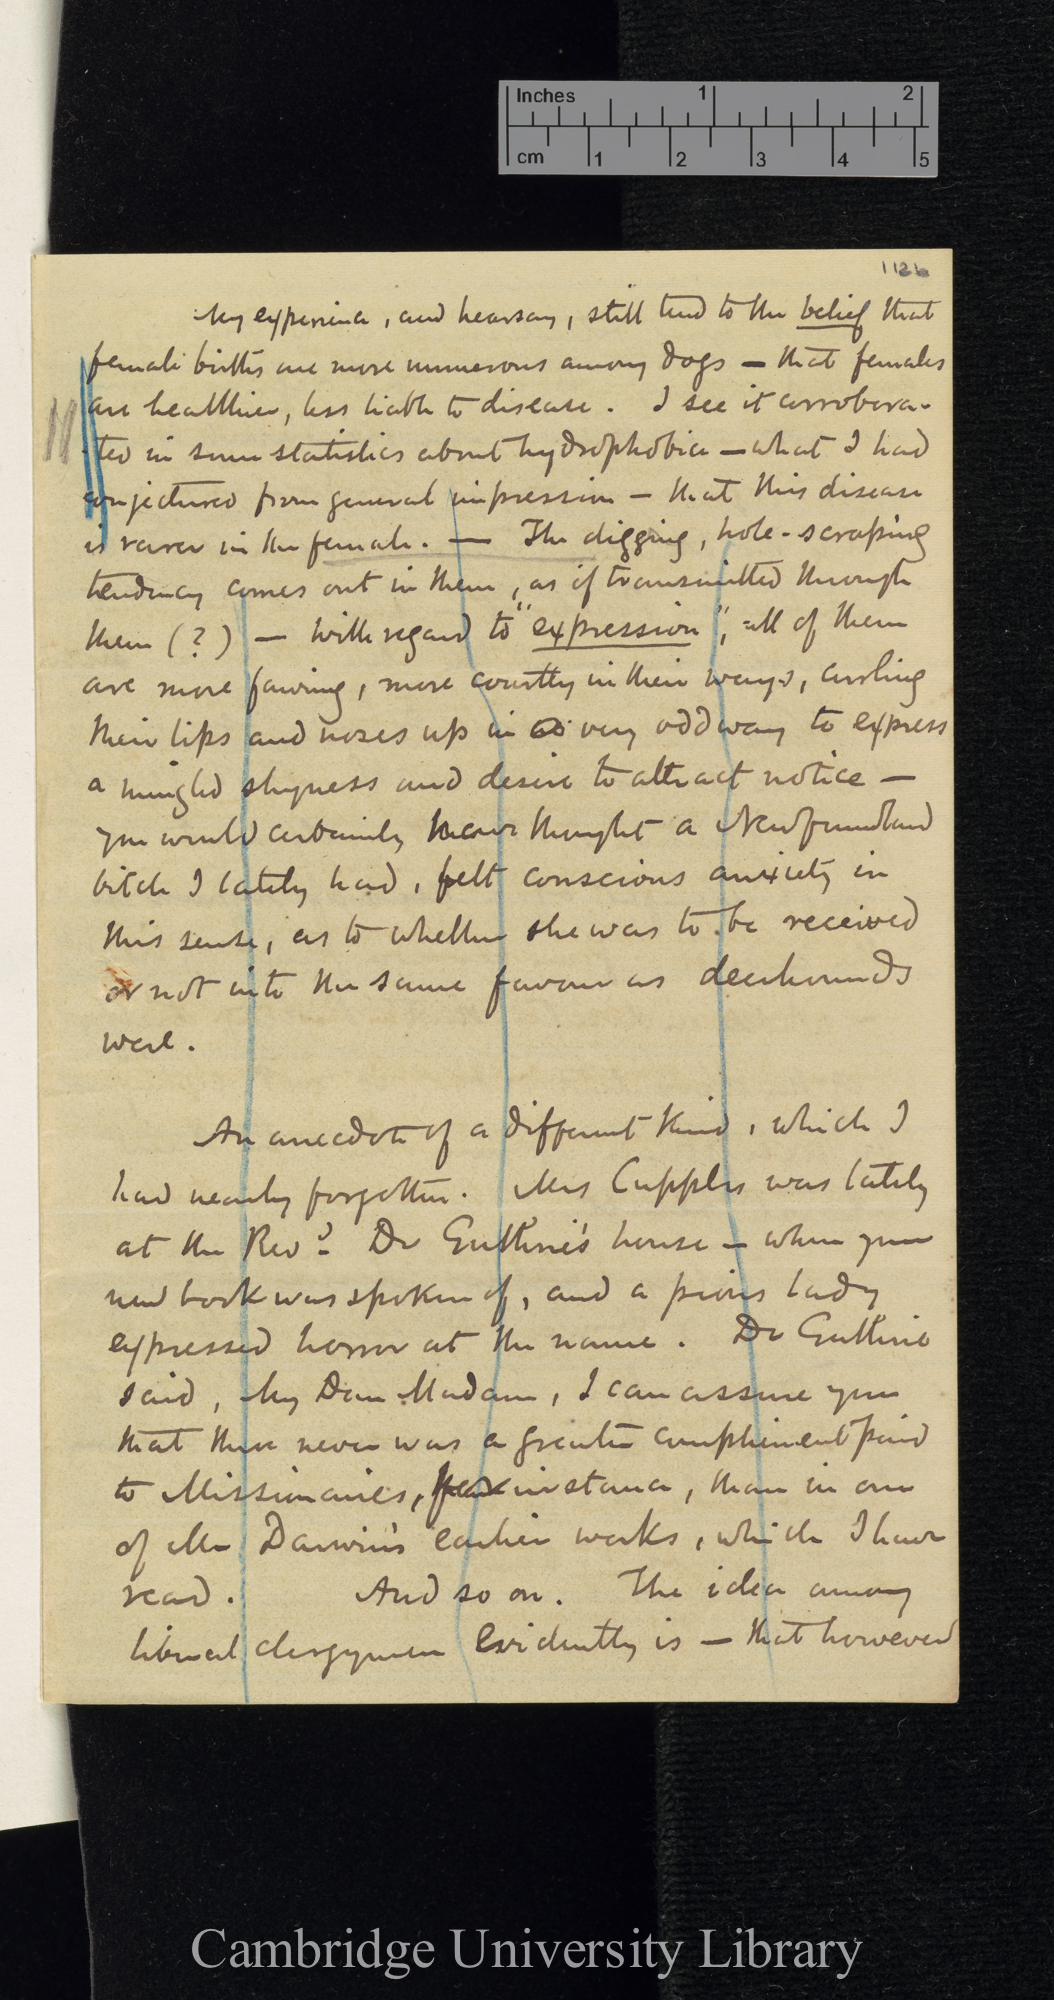 Inches 1 2
cm 1 2 3 4 5
112b
My experience, and hearsay, still tend to the belief that
female births are more numerous among dogs — that females
are healthier, less liable to disease. I see it corrobora-
ted in some statistics about hydrophobia — what I had
conjectured from general impression — that this disease
is rarer in the female. — The digging, hole-scraping
tendency comes out in them, as if transmitted through
them (?) — With regard to "expression", all of them
are more fawning, more courtly in their ways, curling
their lips and noses up in a very odd way to express
a mingled shyness and desire to attract notice —
you would certainly have thought a Newfoundland
bitch I lately had, felt conscious anxiety in
this sense, as to whether she was to be received
or not into the same favour as deerhounds
were.
An anecdote of a different kind, which I
had nearly forgotten. Mrs Cupples was lately
at the Revd Dr Guthrie's house — when your
new book was spoken of, and a pious lady
expressed horror at the name. Dr Guthrie
said, My Dear Madam, I can assure you
that there never was a greater compliment paid
to Missionaries, for instance, than in one
of Mr Darwin's earlier works, which I have
read. And so on. The idea among
liberal clergymen evidently is — that however
Cambridge University Library